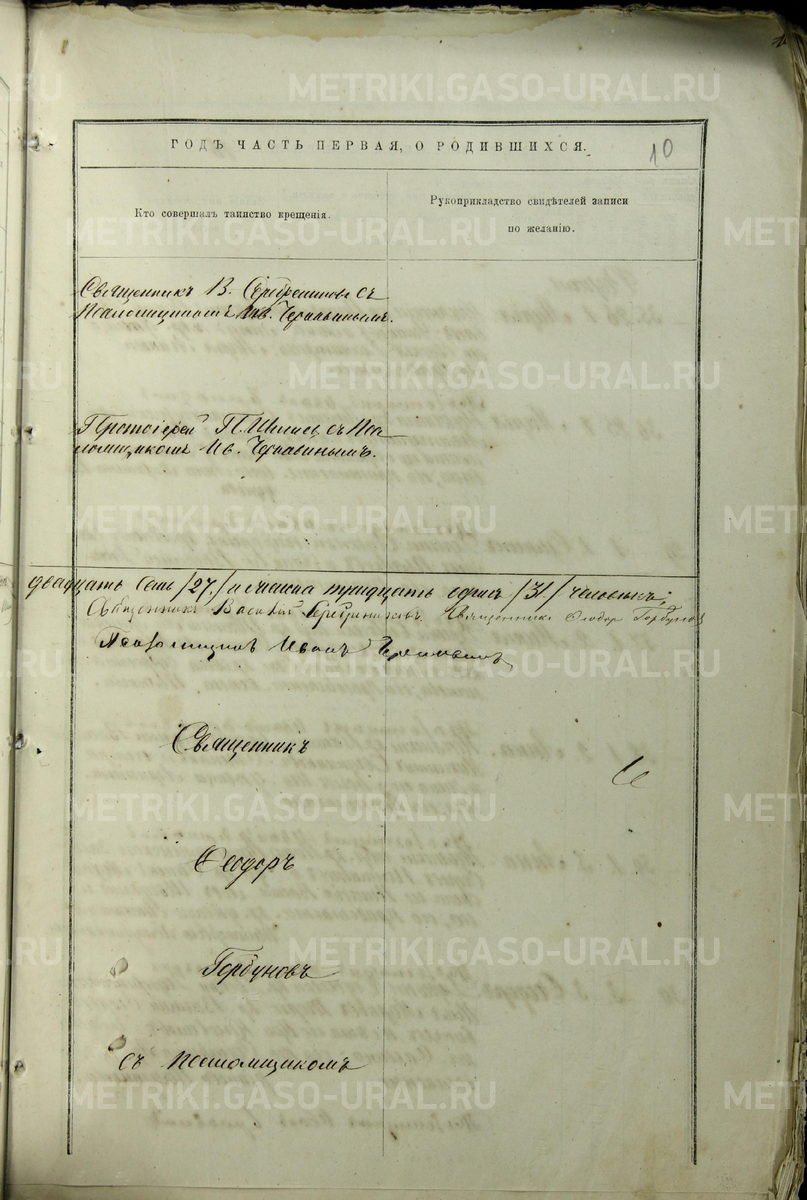 ГОДЪ ЧАСТЬ ПЕРВАЯ, О РОДИВШИХСЯ.
10
Кто совершалъ таинство крещенія.
Рукоприкладство свидѣтелей записи
по желанію.
Священникъ В. Серебренниковъ съ
Псаломщикомъ Ив. Чернавинымъ.
Протоіерей П. Шмисъ съ Пса-
ломщикомъ Ив. Чернавинымъ.
двадцать семь /27/ а всего тридцать одинъ /31/ человѣкъ;
Священникъ Василій Серебренниковъ. Священникъ Ѳеодоръ Горбуновъ
Псаломщикъ Иванъ Чернавинъ
Священникъ
Ѳеодоръ
Горбуновъ
съ псаломщикомъ
METRIKI.GASO-URAL.RU